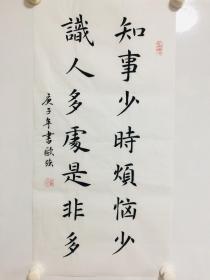 知事少時煩惱少
識人多處是非多
庚子年書歐強